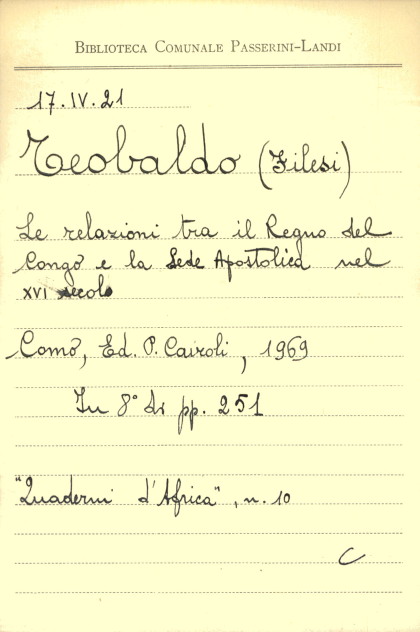 BIBLIOTECA COMUNALE PASSERINI-LANDI
17.IV.21
Teobaldo (Filesi)
Le relazioni tra il Regno del
Congo e la Sede Apostolica nel
XVI secolo
Como, Ed. P. Cairoli, 1969
In 8° di pp. 251
"Quaderni d'Africa", n. 10
C